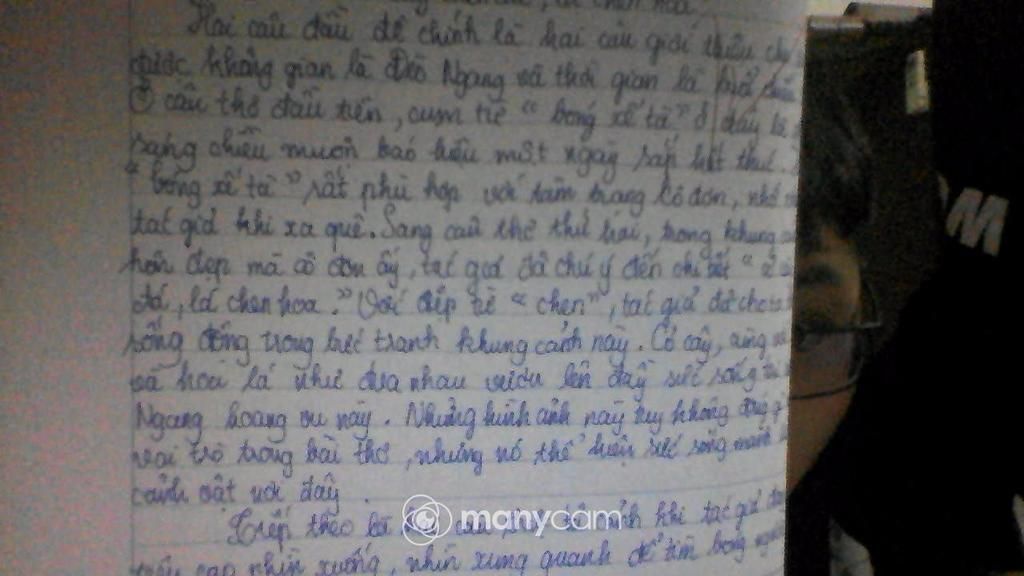 Hai câu đầu đề chính là hai câu giới thiệu cho
được không gian là Đèo Ngang và thời gian là buổi chiều
Ở câu thơ đầu tiên, cụm từ “bóng xế tà” ở đây là
rạng chiều muộn báo hiệu một ngày sắp hết thúc.
“bóng xế tà” rất phù hợp với tâm trạng cô đơn, nhớ
tác giả khi xa quê. Sang câu thơ thứ hai, trong khung
hôn đẹp mà cô đơn ấy, tác giả đã chú ý đến chi tiết “
đá, lá chen hoa.” Với điệp từ “chen”, tác giả đã cho ta
sống động trong bức tranh khung cảnh này. Cỏ cây, cùng
và hoa lá như đua nhau vươn lên đầy sức sống
Ngang hoang vu này. Những hình ảnh này tuy không đóng
vai trò trong bài thơ, nhưng nó thể hiện sức sống mãnh
cảnh vật nơi đây.
Tiếp theo là khi tác giả
cao nhìn xuống, nhìn xung quanh để tìm bóng người
manycam
M